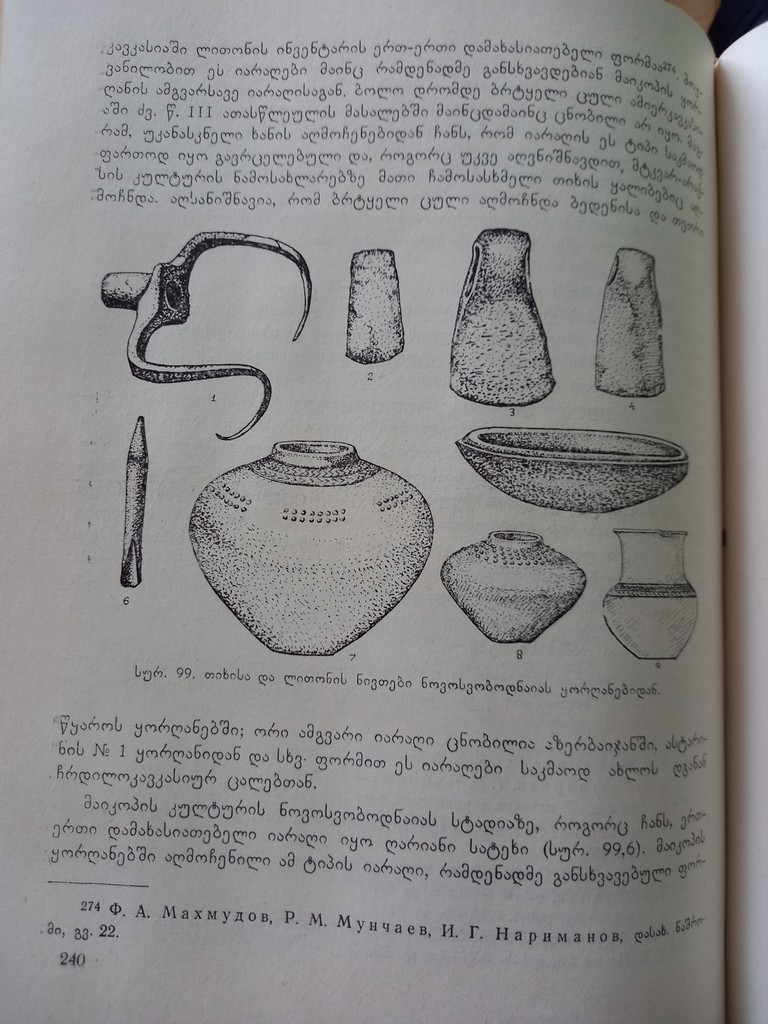 კავკასიაში ლითონის ინვენტარის ერთ-ერთი დამახასიათებელი ფორმაა²⁷⁴.
ვანილობით ეს იარაღები მაინც რამდენადმე განსხვავდებიან მაიკოპის ყორ-
ღანის ამგვარსავე იარაღისაგან. ბოლო დრომდე ბრტყელი ცული ამიერკავკასი-
აში ძვ. წ. III ათასწლეულის მასალებში მაინცდამაინც ცნობილი არ იყო. მაგ-
რამ, უკანასკნელი ხანის აღმოჩენებიდან ჩანს, რომ იარაღის ეს ტიპი საკმაოდ
ფართოდ იყო გავრცელებული და, როგორც უკვე აღვნიშნავდით, მტკვარ-არაქ-
სის კულტურის ნამოსახლარებზე მათი ჩამოსასხმელი თიხის ყალიბებიც აღ-
მოჩნდა. აღსანიშნავია, რომ ბრტყელი ცული აღმოჩნდა ბედენისა და თეთრი
1
2
3
4
6
7
8
9
სურ. 99. თიხისა და ლითონის ნივთები ნოვოსვობოდნაიას ყორღანებიდან.
წყაროს ყორღანებში; ორი ამგვარი იარაღი ცნობილია აზერბაიჯანში, ასტარი-
ნის № 1 ყორღანიდან და სხვ. ფორმით ეს იარაღები საკმაოდ ახლოს დგანან
ჩრდილოკავკასიურ ცალებთან.
მაიკოპის კულტურის ნოვოსვობოდნაიას სტადიაზე, როგორც ჩანს, ერთ-
ერთი დამახასიათებელი იარაღი იყო ღარიანი სატეხი (სურ. 99,6). მაიკოპის
ყორღანებში აღმოჩენილი ამ ტიპის იარაღი, რამდენადმე განსხვავებული ფორ-
²⁷⁴ Ф. А. Махмудов, Р. М. Мунчаев, И. Г. Нариманов, დასახ. ნაშრო-
მი, გვ. 22.
240